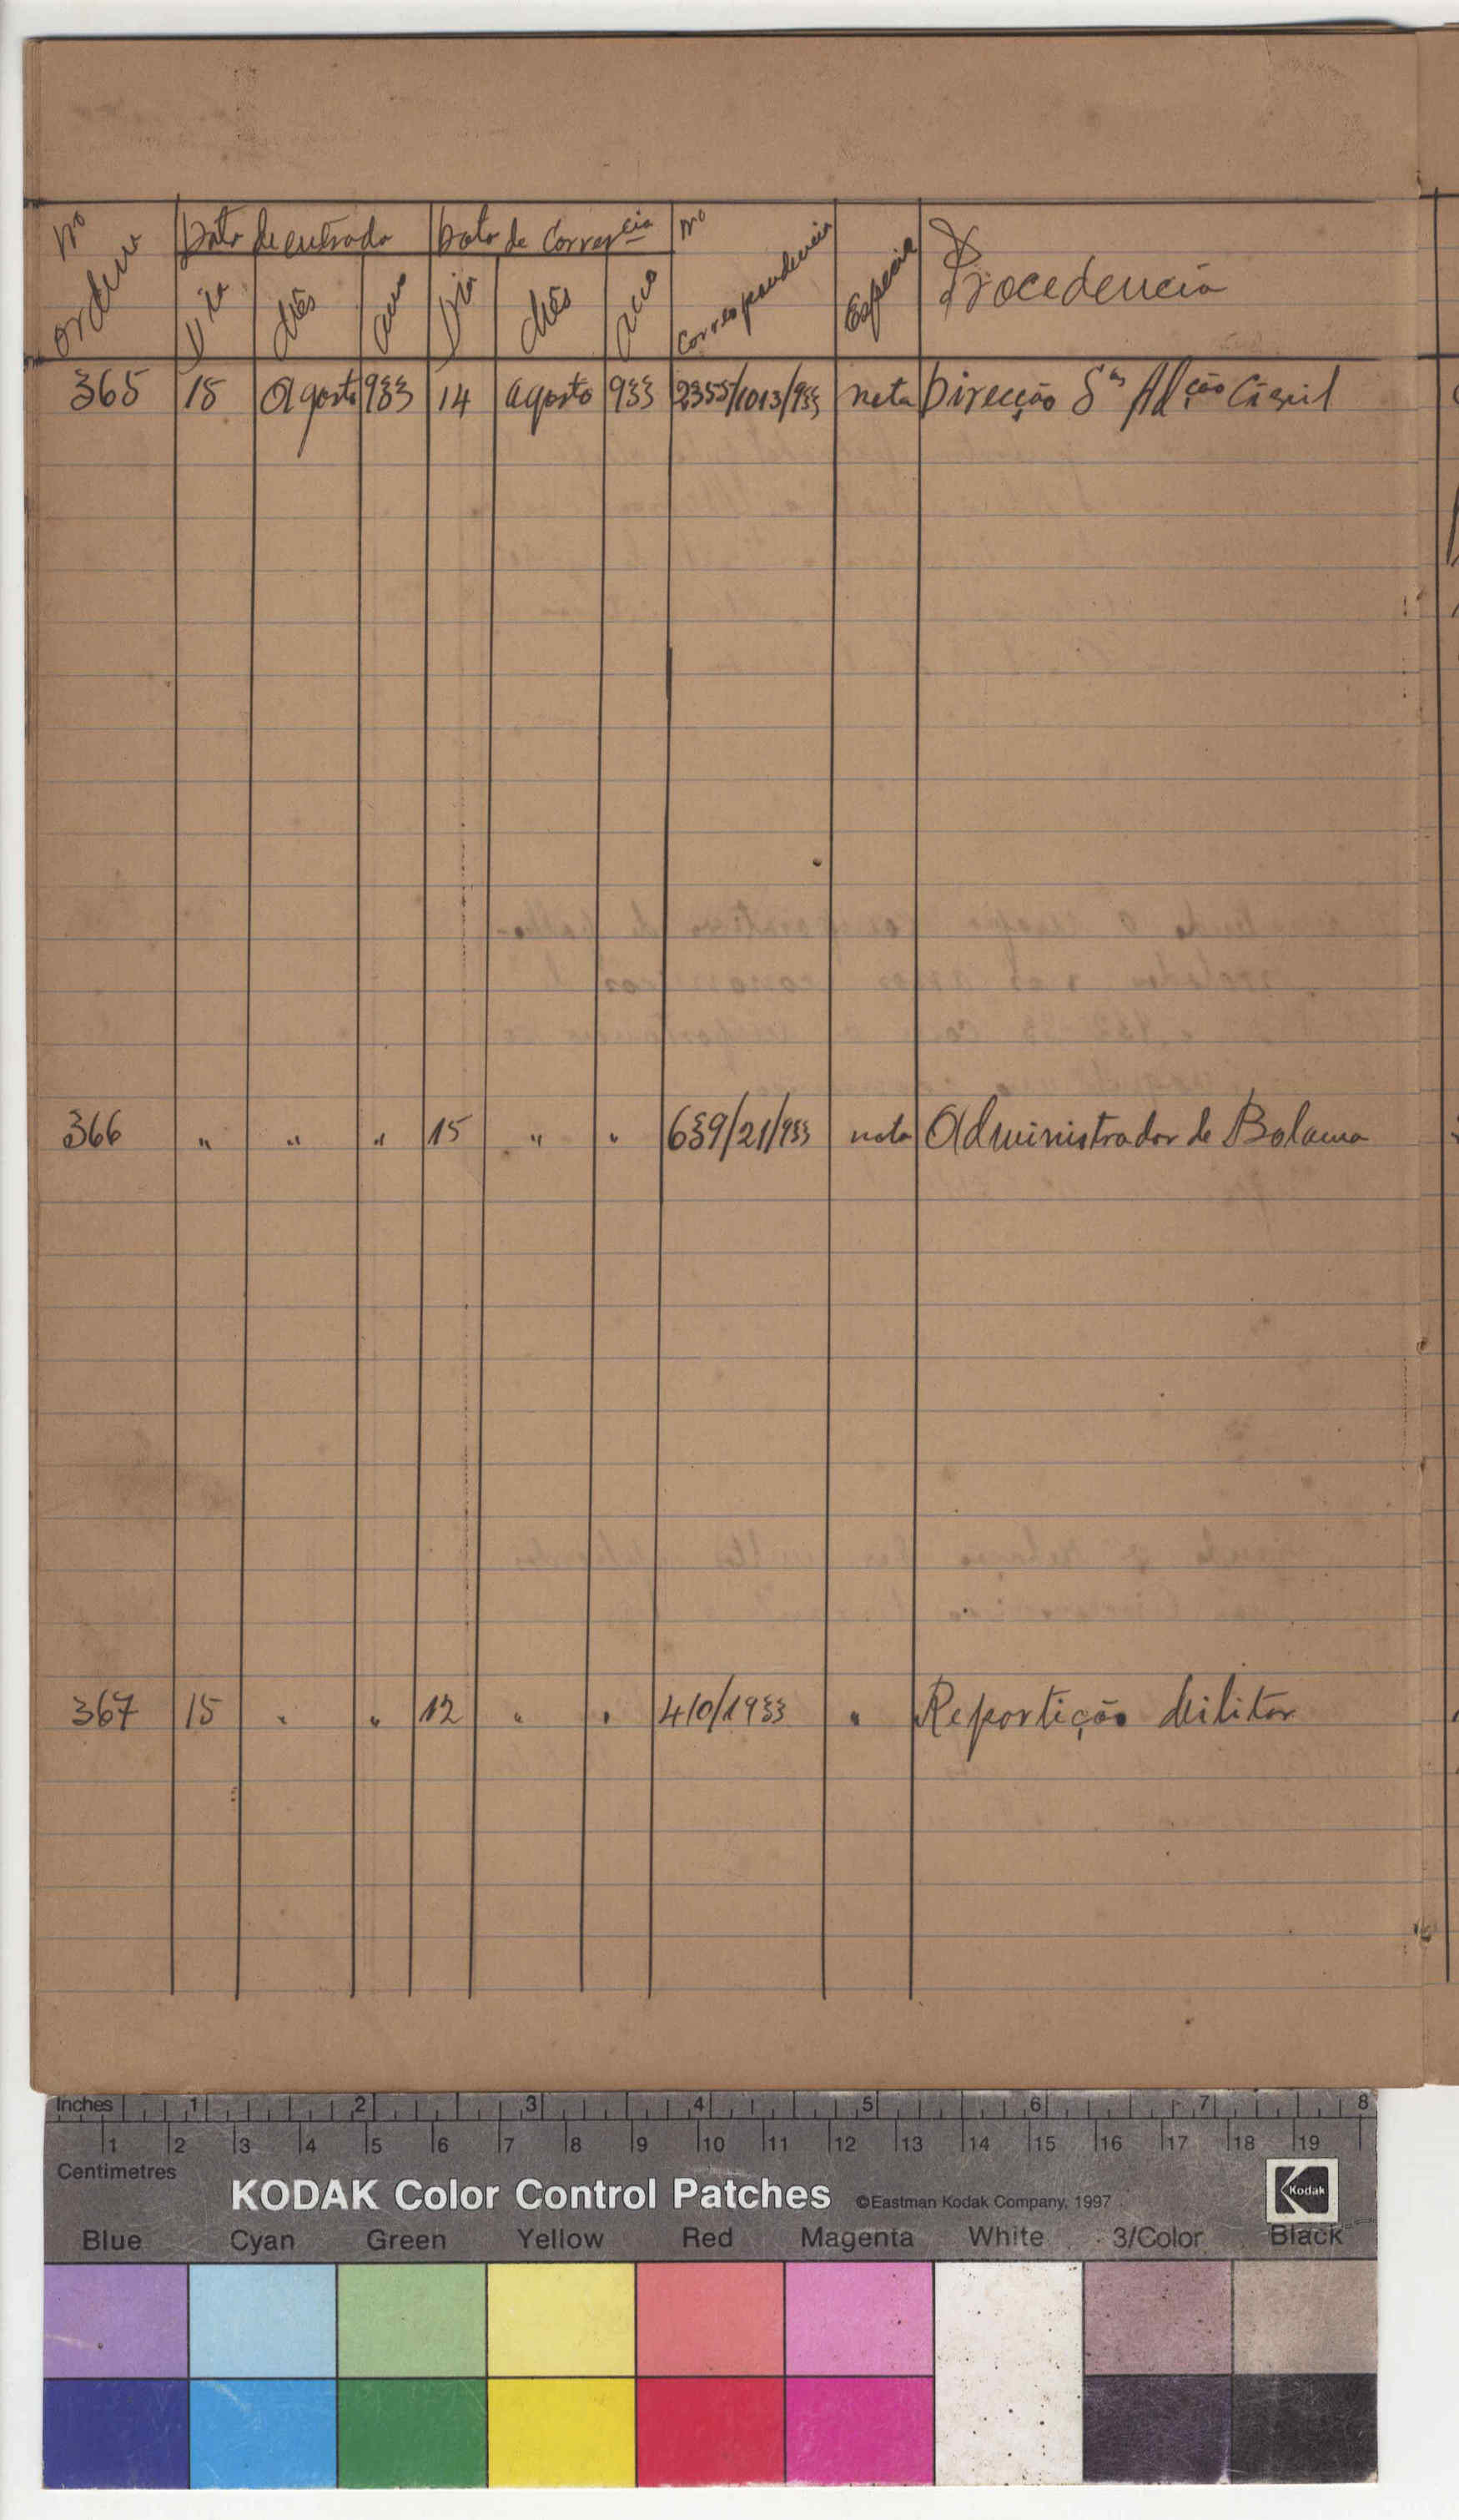 Nº ordem
Data de entrada
Data de Corresp.cia
Nº Correspondencia
Especie
Procedencia
Dia Mês ano Dia Mês ano
365 15 Agosto 933 14 agosto 933 2355/1013/933 nota Direcção S.os Ad.ção Civil
366 " " " 15 " " 639/21/933 nota Administrador de Bolama
367 15 " " 12 " " 410/1933 " Repartição Militar
Inches 1 2 3 4 5 6 7 8
1 2 3 4 5 6 7 8 9 10 11 12 13 14 15 16 17 18 19
Centimetres
KODAK Color Control Patches ©Eastman Kodak Company, 1997 Kodak
Blue Cyan Green Yellow Red Magenta White 3/Color Black